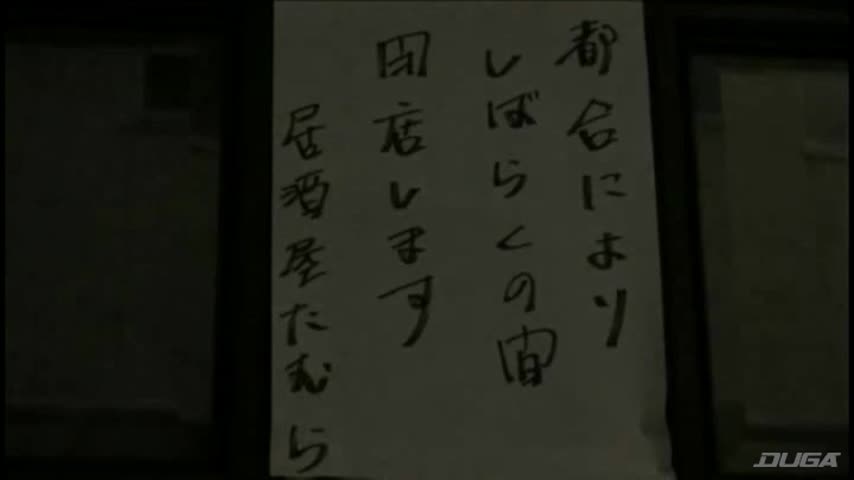 都合により
しばらくの間
閉店します
居酒屋たむら
DUGA